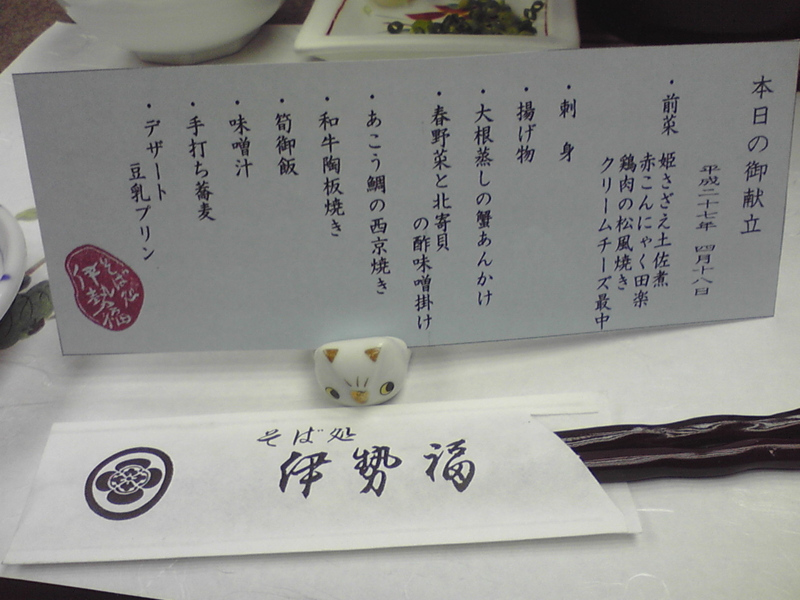 本日の御献立
平成二十七年 四月十八日
・前菜 姫さざえ土佐煮
赤こんにゃく田楽
鶏肉の松風焼き
クリームチーズ最中
・刺身
・揚げ物
・大根蒸しの蟹あんかけ
・春野菜と北寄貝
の酢味噌掛け
・あこう鯛の西京焼き
・和牛陶板焼き
・筍御飯
・味噌汁
・手打ち蕎麦
・デザート
豆乳プリン
そば処
伊勢福
そば処
伊勢福